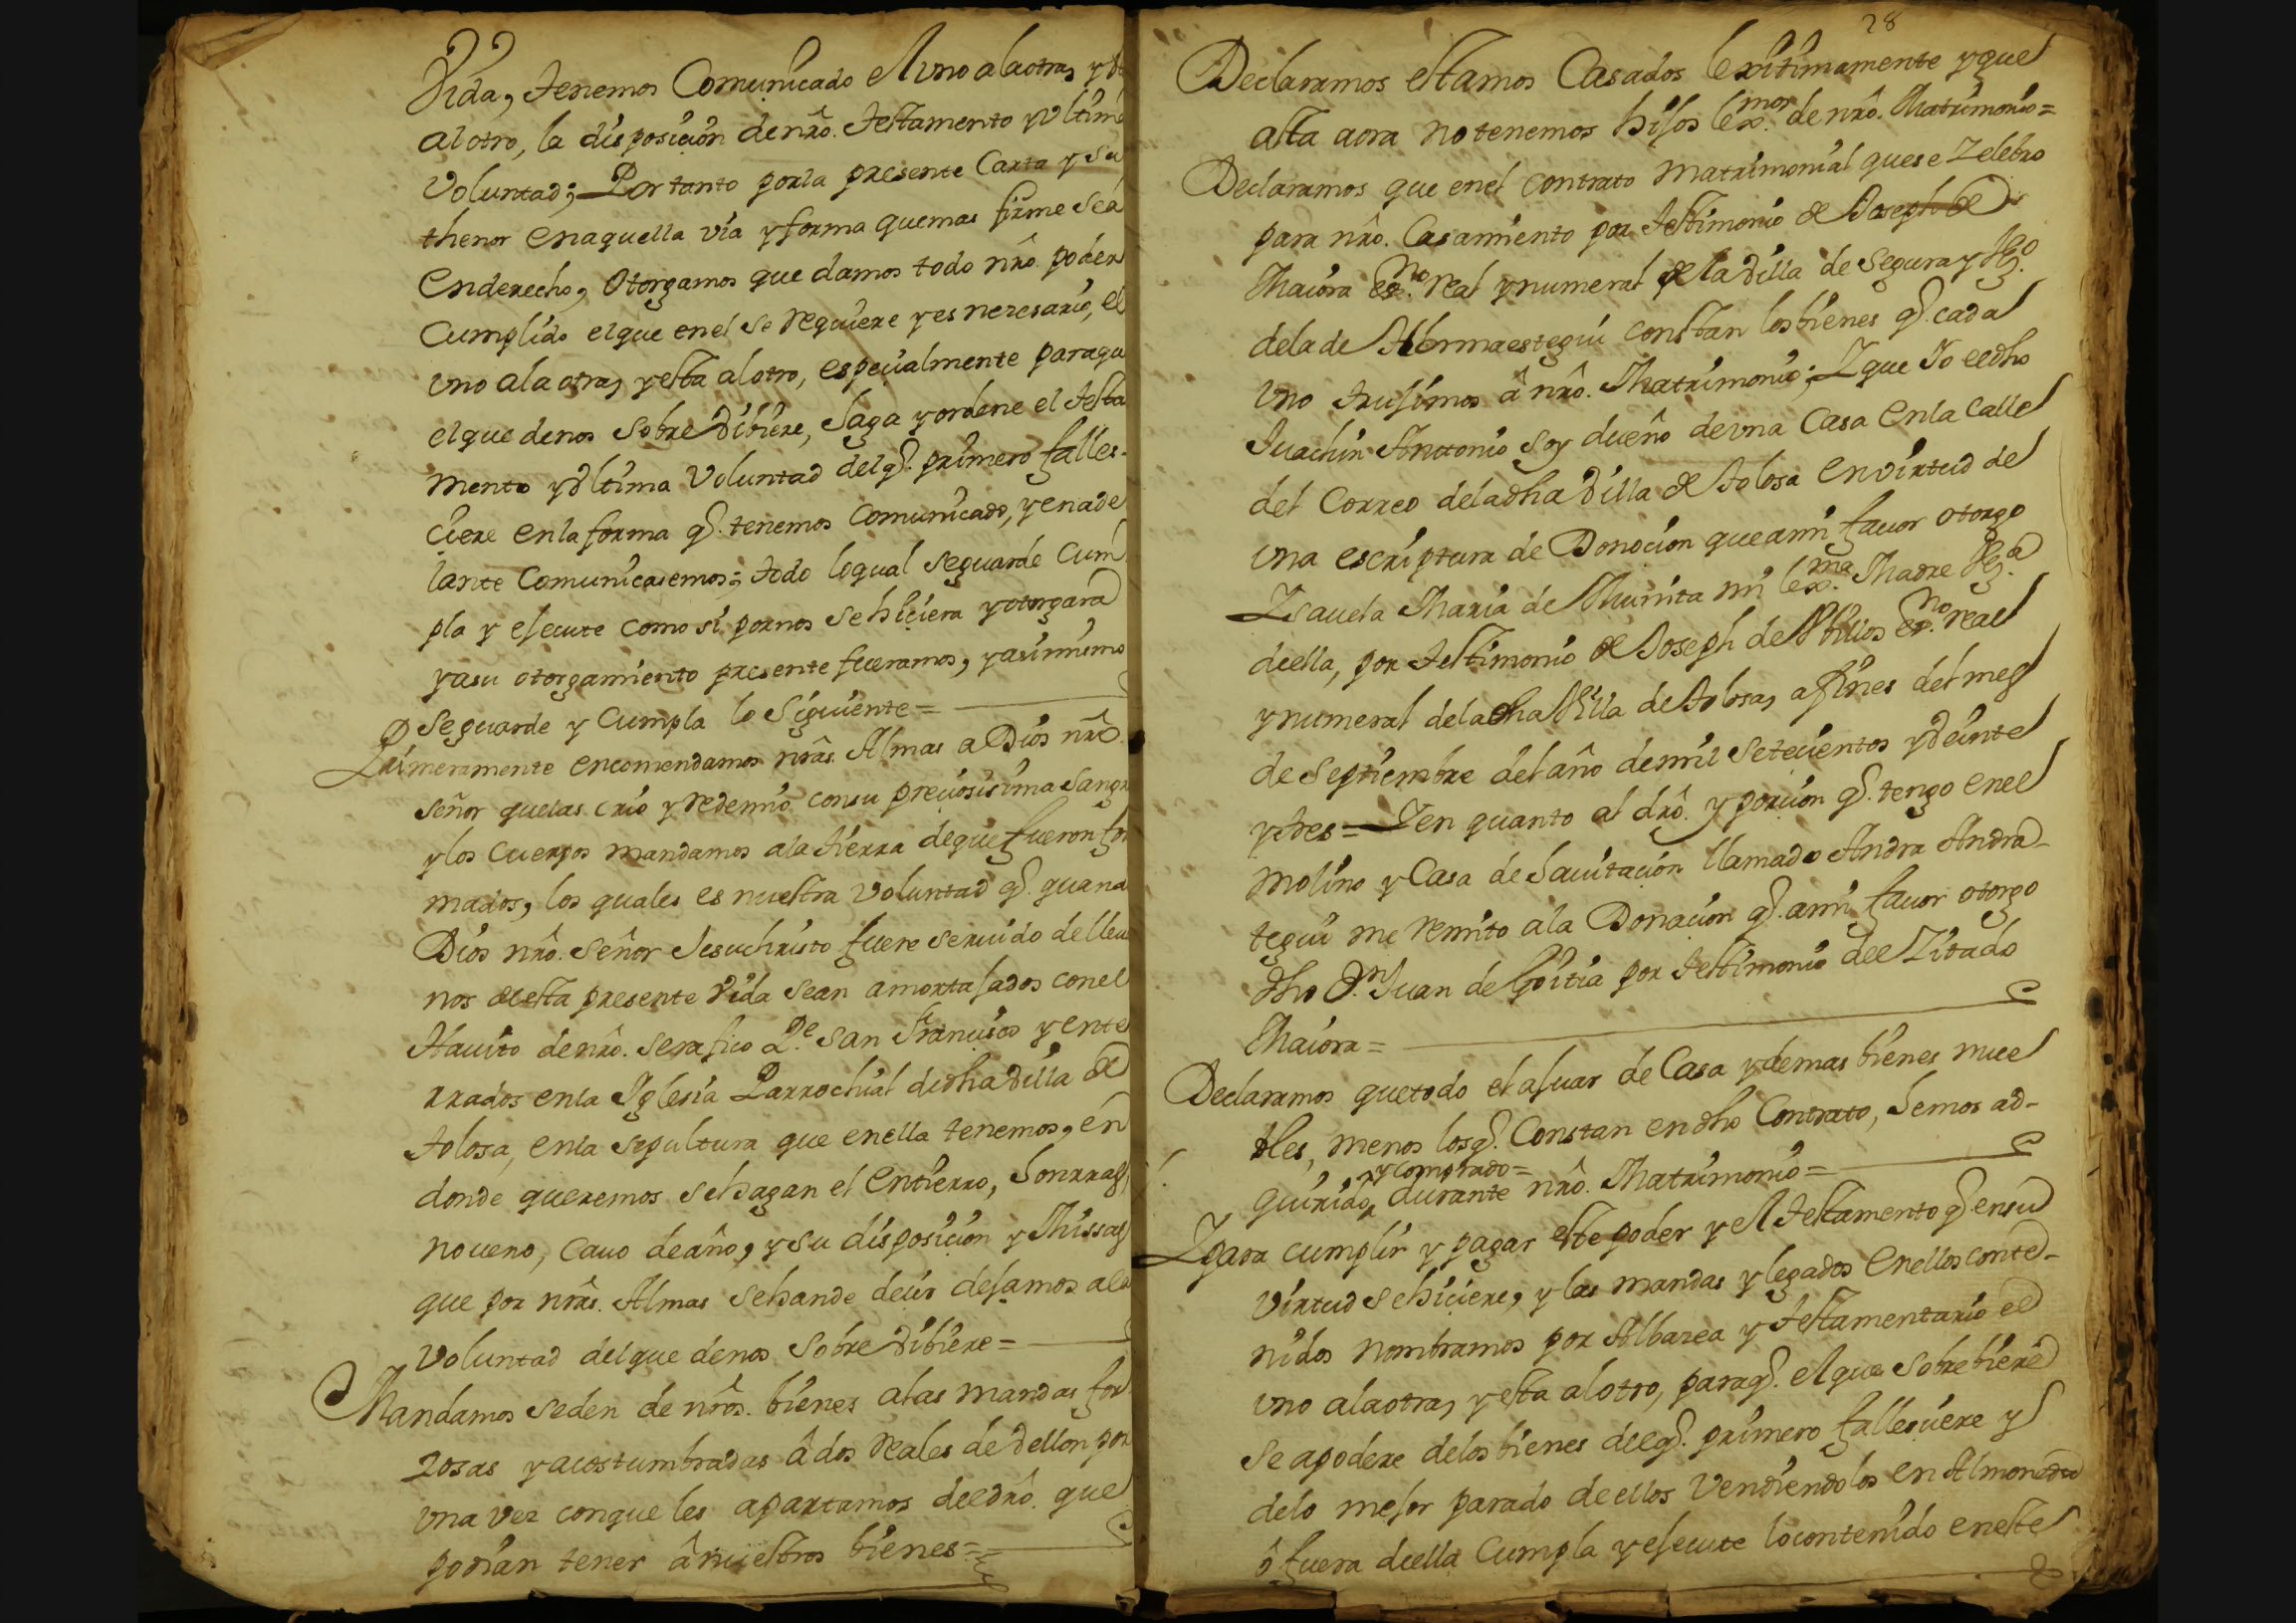 Vida, tenemos Comunicado el uno alaotra, y
alotro, la disposicion denrô. testamento y vltima
Voluntad; Por tanto porla presente Carta y su
thenor enaquella via y forma quemas firme sea
Enderecho, Otorgamos que damos todo nrô. poder
Cumplido elque enel se requiere y es neresario, el
vno ala otra, y esta alotro, especialmente paraqu
elque denos sobreVibiere, haga y ordene el testa
mento yVltima Voluntad delq.ᵉ primero falles-
ciere enla forma q.ᵉ tenemos Comunicado, y enade
lante Comunicasemos; todo loqual seguarde Cum
pla y esecute como si pornos sehiciera yotorgara
yasu otorgamiento presente fueramos, yasimismo
seguarde y Cumpla lo Siguiente=
Primeramente encomendamos nrâs. Almas a Dios nrô.
señor quelas crio y redemio consu preciosisima Sangr
ylos cuerpos mandamos ala tierra deque fueron for
mados, los quales es nuestra Voluntad q.ᵉ quana
Dios nrô. señor Jesuchristo fuere seruido delleu
nos deesta presente Vida sean amortasados conel
Hauito denrô. serafico P.ᵉ San Francisco y ente
rrados enla Yglesia Parrochial dedhaVilla de
tolosa, enla sepultura que enella tenemos, en
donde queremos sehagan el Entierro, honrras,
noueno, cauo deaño, y su disposicion y Missas
que por nrâs. Almas sehande decir desamos ala
Voluntad delque denos SobreVibiere=
Mandamos seden de nrôs. bienes alas mandas for
zosas yacostumbradas â dos reales deVellon por
vna vez conque les apartamos deedrô. que
podian tener â nuestros bienes=
28
Declaramos estamos Casados lexitimamente yque
asta aora notenemos hisos lex.mos de nrô. Matrimonio=
Declaramos que enel contrato matrimonial quese zelebro
para nrô. Casamiento por testimonio de Joseph de
Maiora es.no real ynumeral de la Villa de Segura y vez.o
delade Albormaestegui constan los bienes q.ᵉ cada
vno trusimos â nrô. Matrimonio; Yque Yo eldho
Juachin Antonio soy dueño devna Casa Enla Calle
del Correo deladha Villa de tolosa Envirtud de
vna escriptura de Donocion queami fauor otorgo
Ysauela Maria de Munita mi lex.ma Madre vez.a
deella, por testimonio de Joseph de Vbillos es.no real
ynumeral deladha Villa de tolosa, a fines del mes
de Septiembre del año demil setecientos yVeinte
ytres= Yen quanto al drô. y porcion q.ᵉ tengo enel
Molino y Casa de hauitacion llamado Andra Andra-
tegui me remito ala Donacion q.ᵉ ami fauor otorgo
dho D.n Juan de Goitia por testimonio deel Zitado
Maiora=
Declaramos quetodo el asuar de Casa ydemas bienes mue
bles, menos losq.ᵉ Constan endho Contrato, hemos ad-
y comprado=
quirido durante nrô. Matrimonio=
Ypara cumplir y pagar este poder y el testamento q.ᵉ ensu
virtud sehiciere, y las mandas ylegados Enellos conte-
nidos nombramos por Albazea y testamentario el
vno alaotra, y esta alotro, paraq.ᵉ el que sobrebiere
se apodere delos bienes deelq.ᵉ primero fallesciere y
delo mesor parado deellos Vendiendolos en Almoneda
ô fuera deella Cumpla yesecute locontenido eneste